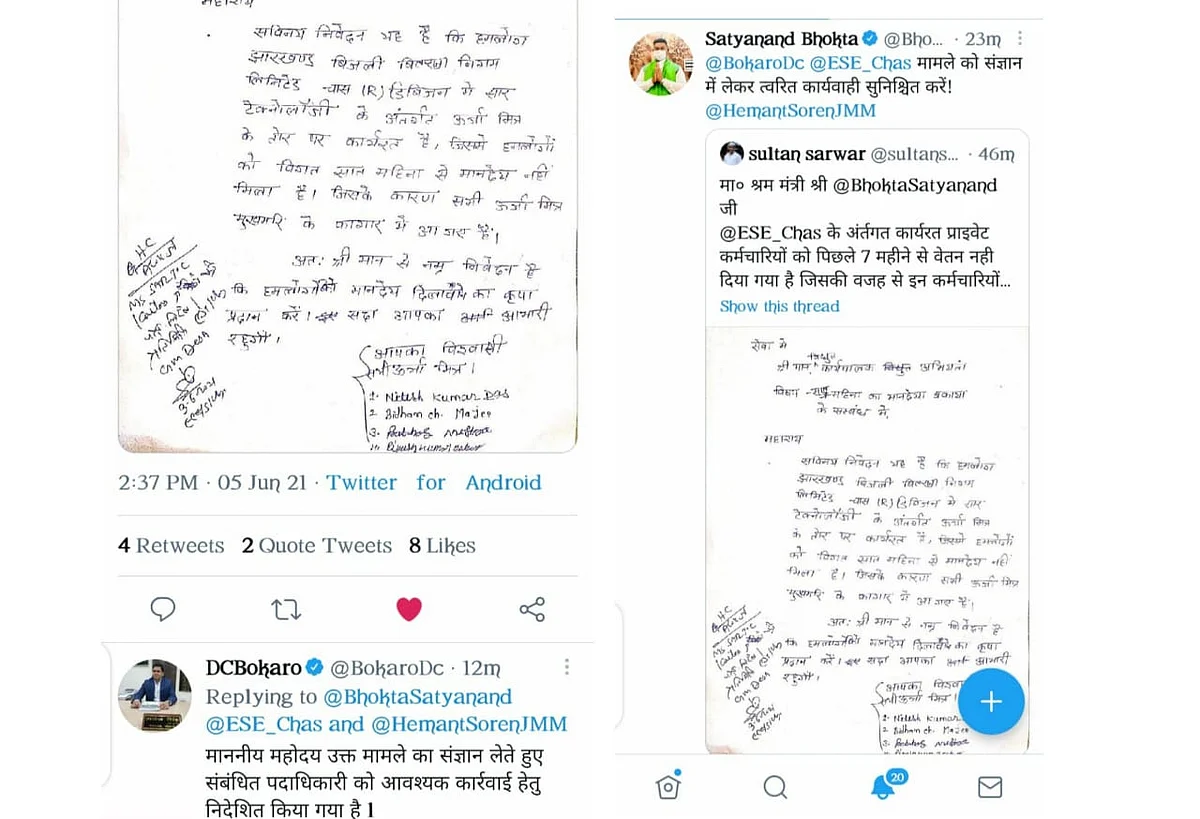 महाशय
सविनय निवेदन यह है कि हमलोग
झारखण्ड बिजली वितरण निगम
लिमिटेड चास (R) डिविजन में सार
टेक्नोलॉजी के अंतर्गत ऊर्जा मित्र
के तौर पर कार्यरत है, जिसमे हमलोगों
को विगत सात महिना से मानदेय नहीं
मिला है। जिसके कारण सभी ऊर्जा मित्र
भुखमरी के कागार में आ गए हैं।
अतः श्री मान से नम्र निवेदन है
कि हमलोगोंको मानदेय दिलावेंदेने का कृपा
प्रदान करें। हम सदा आपका आभारी
रहुगाँ।
आपका विश्वासी
सभी ऊर्जा मित्र।
1. Nitesh Kumar Das
2 Bidham ch. Majee
3.
2:37 PM · 05 Jun 21 · Twitter for Android
4 Retweets 2 Quote Tweets 8 Likes
DCBokaro @BokaroDc · 12m
Replying to @BhoktaSatyanand
@ESE_Chas and @HemantSorenJMM
माननीय महोदय उक्त मामले का संज्ञान लेते हुए
संबंधित पदाधिकारी को आवश्यक कार्रवाई हेतु
निदेशित किया गया है l
Satyanand Bhokta @Bho... · 23m
@BokaroDc @ESE_Chas मामले को संज्ञान
में लेकर त्वरित कार्यवाही सुनिश्चित करें!
@HemantSorenJMM
sultan sarwar @sultans... · 46m
मा० श्रम मंत्री श्री @BhoktaSatyanand
जी
@ESE_Chas के अंर्तगत कार्यरत प्राइवेट
कर्मचारियों को पिछले 7 महीने से वेतन नही
दिया गया है जिसकी वजह से इन कर्मचारियों...
Show this thread
सेवा में
श्री मान, विद्युत कार्यपालक अभियंता
विषय - सात महिना का मानदेय बकाया
के सम्बंध में,
महाशय
सविनय निवेदन यह है कि हमलोग
झारखण्ड बिजली वितरण निगम
लिमिटेड चास (R) डिविजन में सार
टेक्नोलॉजी के अंतर्गत ऊर्जा मित्र
के तौर पर कार्यरत है, जिसमे हमलोगों
को विगत सात महिना से मानदेय नहीं
मिला है। जिसके कारण सभी ऊर्जा मित्र
भुखमरी के कागार में आ गए हैं।
अतः श्री मान से नम्र निवेदन है
कि हमलोगोंको मानदेय का कृपा
प्रदान करें। हम सदा आपका आभारी
रहुगाँ।
आपका
1. Nitesh Kumar
2. Bidham ch. Maj
3.
20